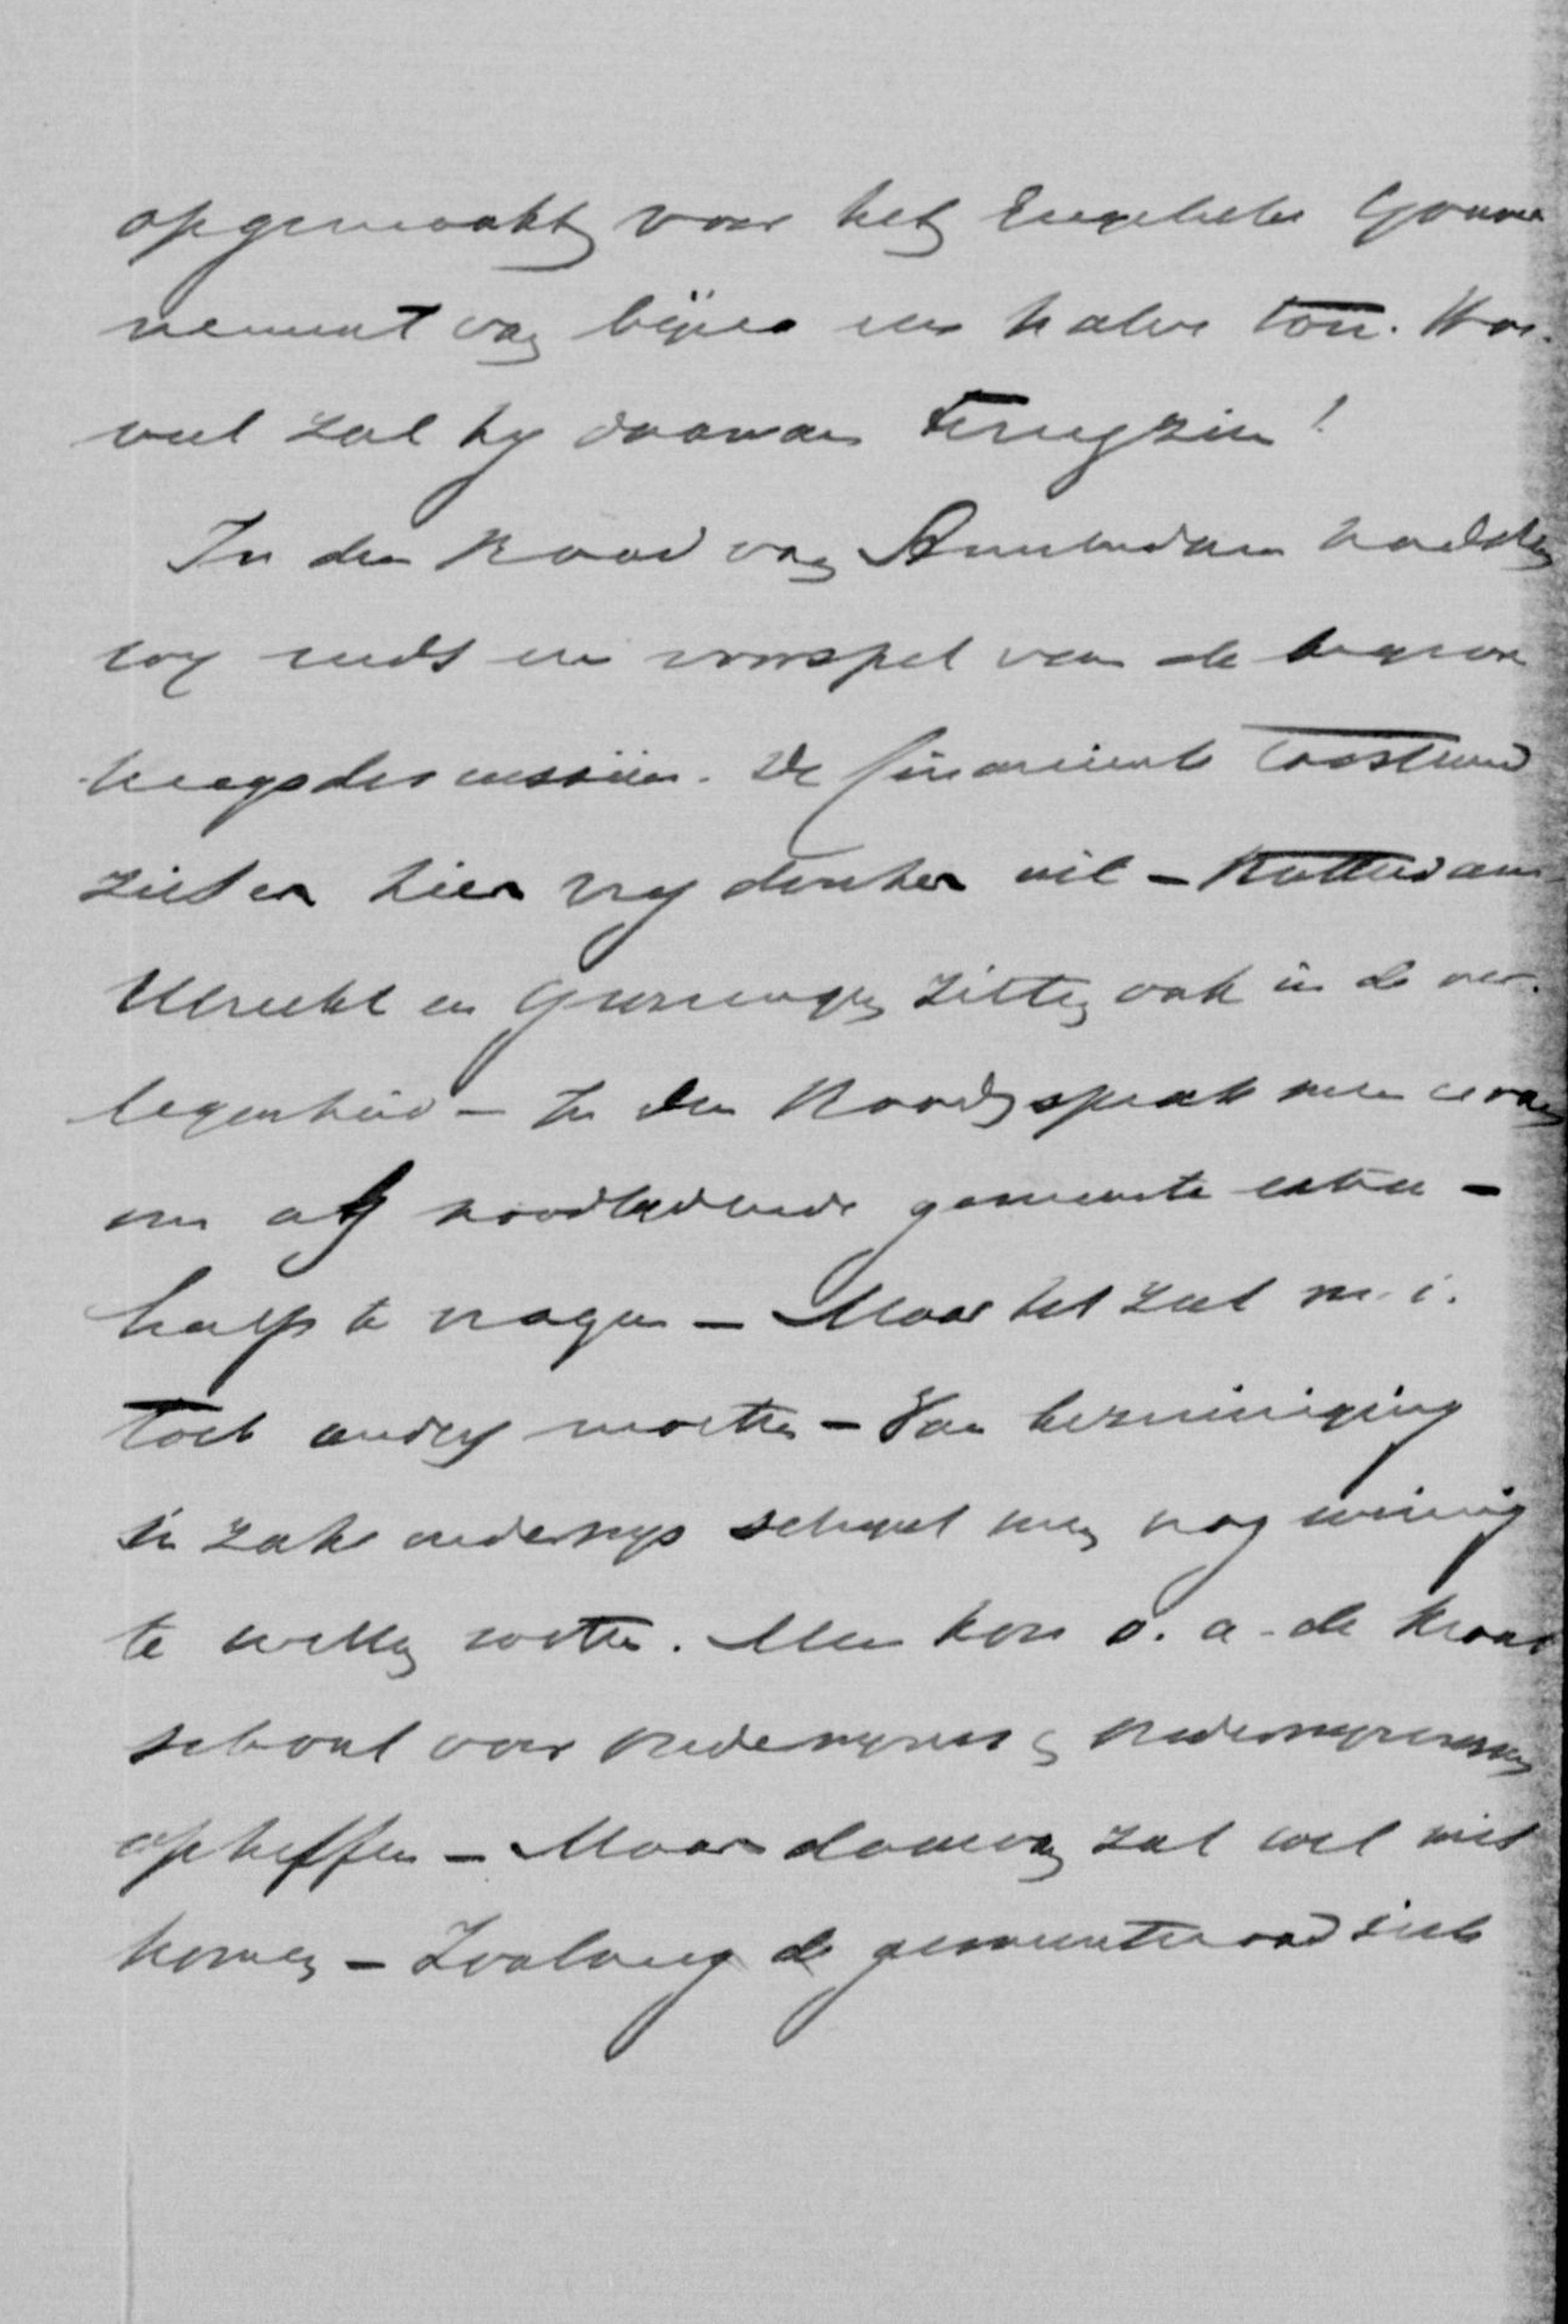 opgemaakt voor het Engelsche Gouver
nement van bijna een halve ton. Hoe-
veel zal hij daarvan terugzien!
In den Raad van Amsterdam hadden
wij reeds een voorspel van de begroo
tingsdiscussiën. De financieele toestand
ziet er hier vrij donker uit – Rotterdam
Utrecht en Groningen zitten ook in de ver-
legenheid – In den Raad sprak men ervan
om als noodlydende gemeente extra –
hulp te vragen – Maar het zal m.i.
toch anders moeten – Van bezuiniging
in zake onderwys schynt men nog weinig
te willen weten. Men kon o.a. de kweek
school voor onderwyzers en onderwyzeressen
opheffen – Maar daarvan zal wel niet
komen – Zoolang de gemeenteraad zich